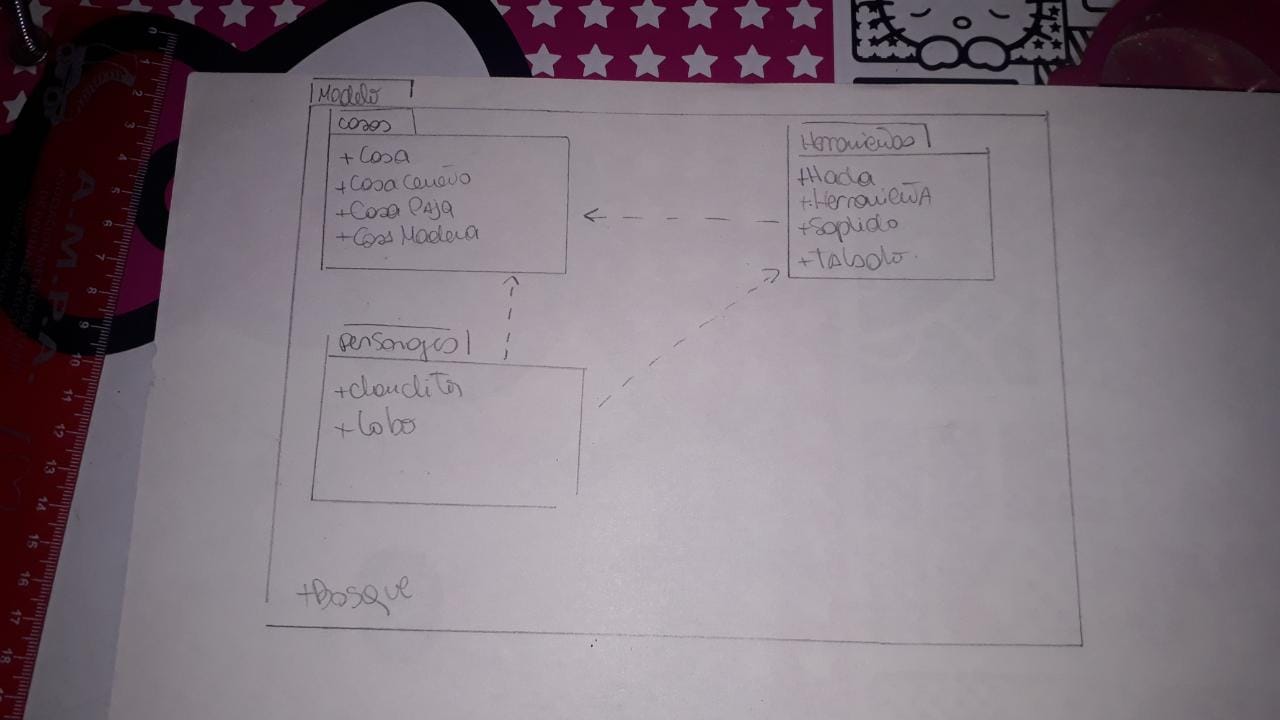 Modelo
casas
+ Casa
+Casa Cemento
+Casa PAJA
+Casa Madera
Herramientas
+Hacha
+HerramientA
+Soplido
+TAlado.
personajes
+cerditos
+Lobo
+Bosque
A.M.P.A.
0
1
2
3
4
5
6
7
8
9
10
11
12
13
14
15
16
17
18